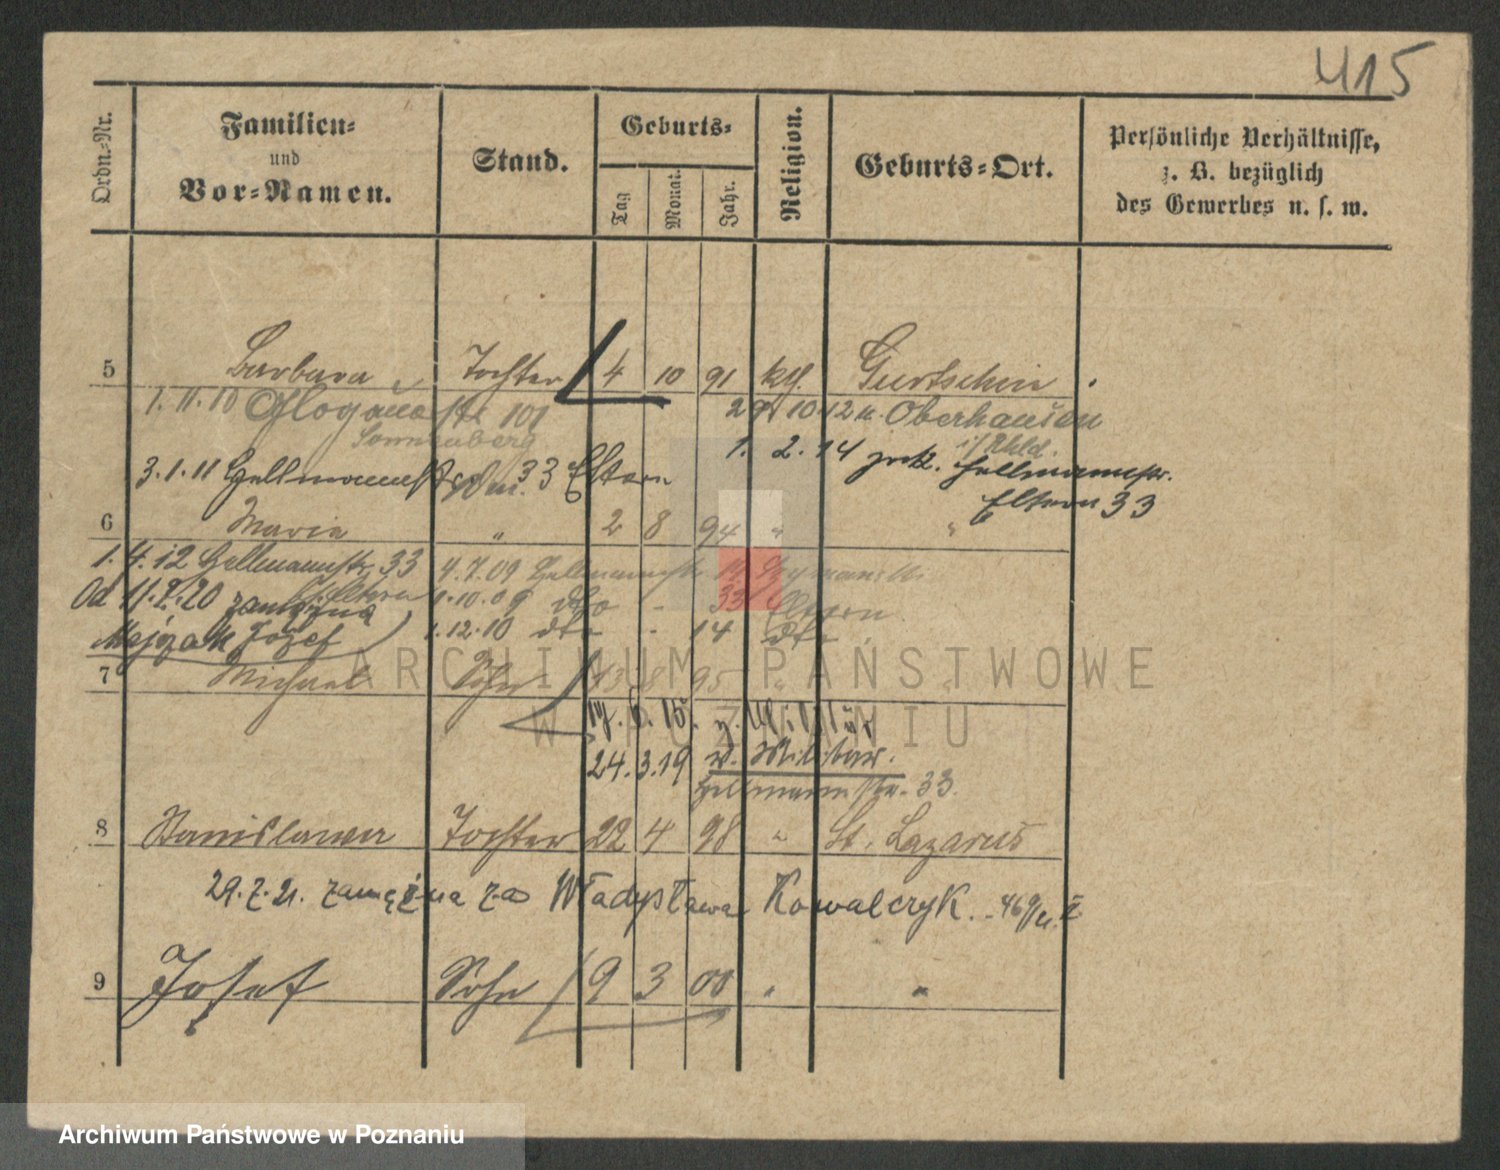 415
Ordn.-Nr.
Familien-
und
Vor-Namen.
Stand.
Geburts-
Tag
Monat.
Jahr.
Religion.
Geburts-Ort.
Persönliche Verhältnisse,
z. B. bezüglich
des Gewerbes u. s. w.
5 Barbara Tochter 4 10 91 kth. Gurtschin
1.11.10 Glogauerstr 101 29 10.12 n. Oberhausen
Sonnenberg i/Rhld.
1. 2. 14 zrck. Hellmannstr.
3.1.11 Hellmannstr 33 Eltern
Eltern 33
6 Maria " 2 8 94 " "
1.4.12 Hellmannstr. 33 4.7.09 Hellmannstr.
Eltern
Od 11.7.20 zamężna 1.10.09 dto - 33 Eltern
Majzak Józef 1.12.10 dto - 14 dto
7 Michael Sohn 13 8 95 "
17. 5. 15. z. Militär
24.3.19 v. Militär.
Hellmannstr. 33.
8 Stanislawa Tochter 22 4 98 " St. Lazarus
29.7.21. zamężna za Władysława Kowalczyk.
9 Josef Sohn 9 3 00 " "
ARCHIWUM PAŃSTWOWE
W POZNANIU
Archiwum Państwowe w Poznaniu